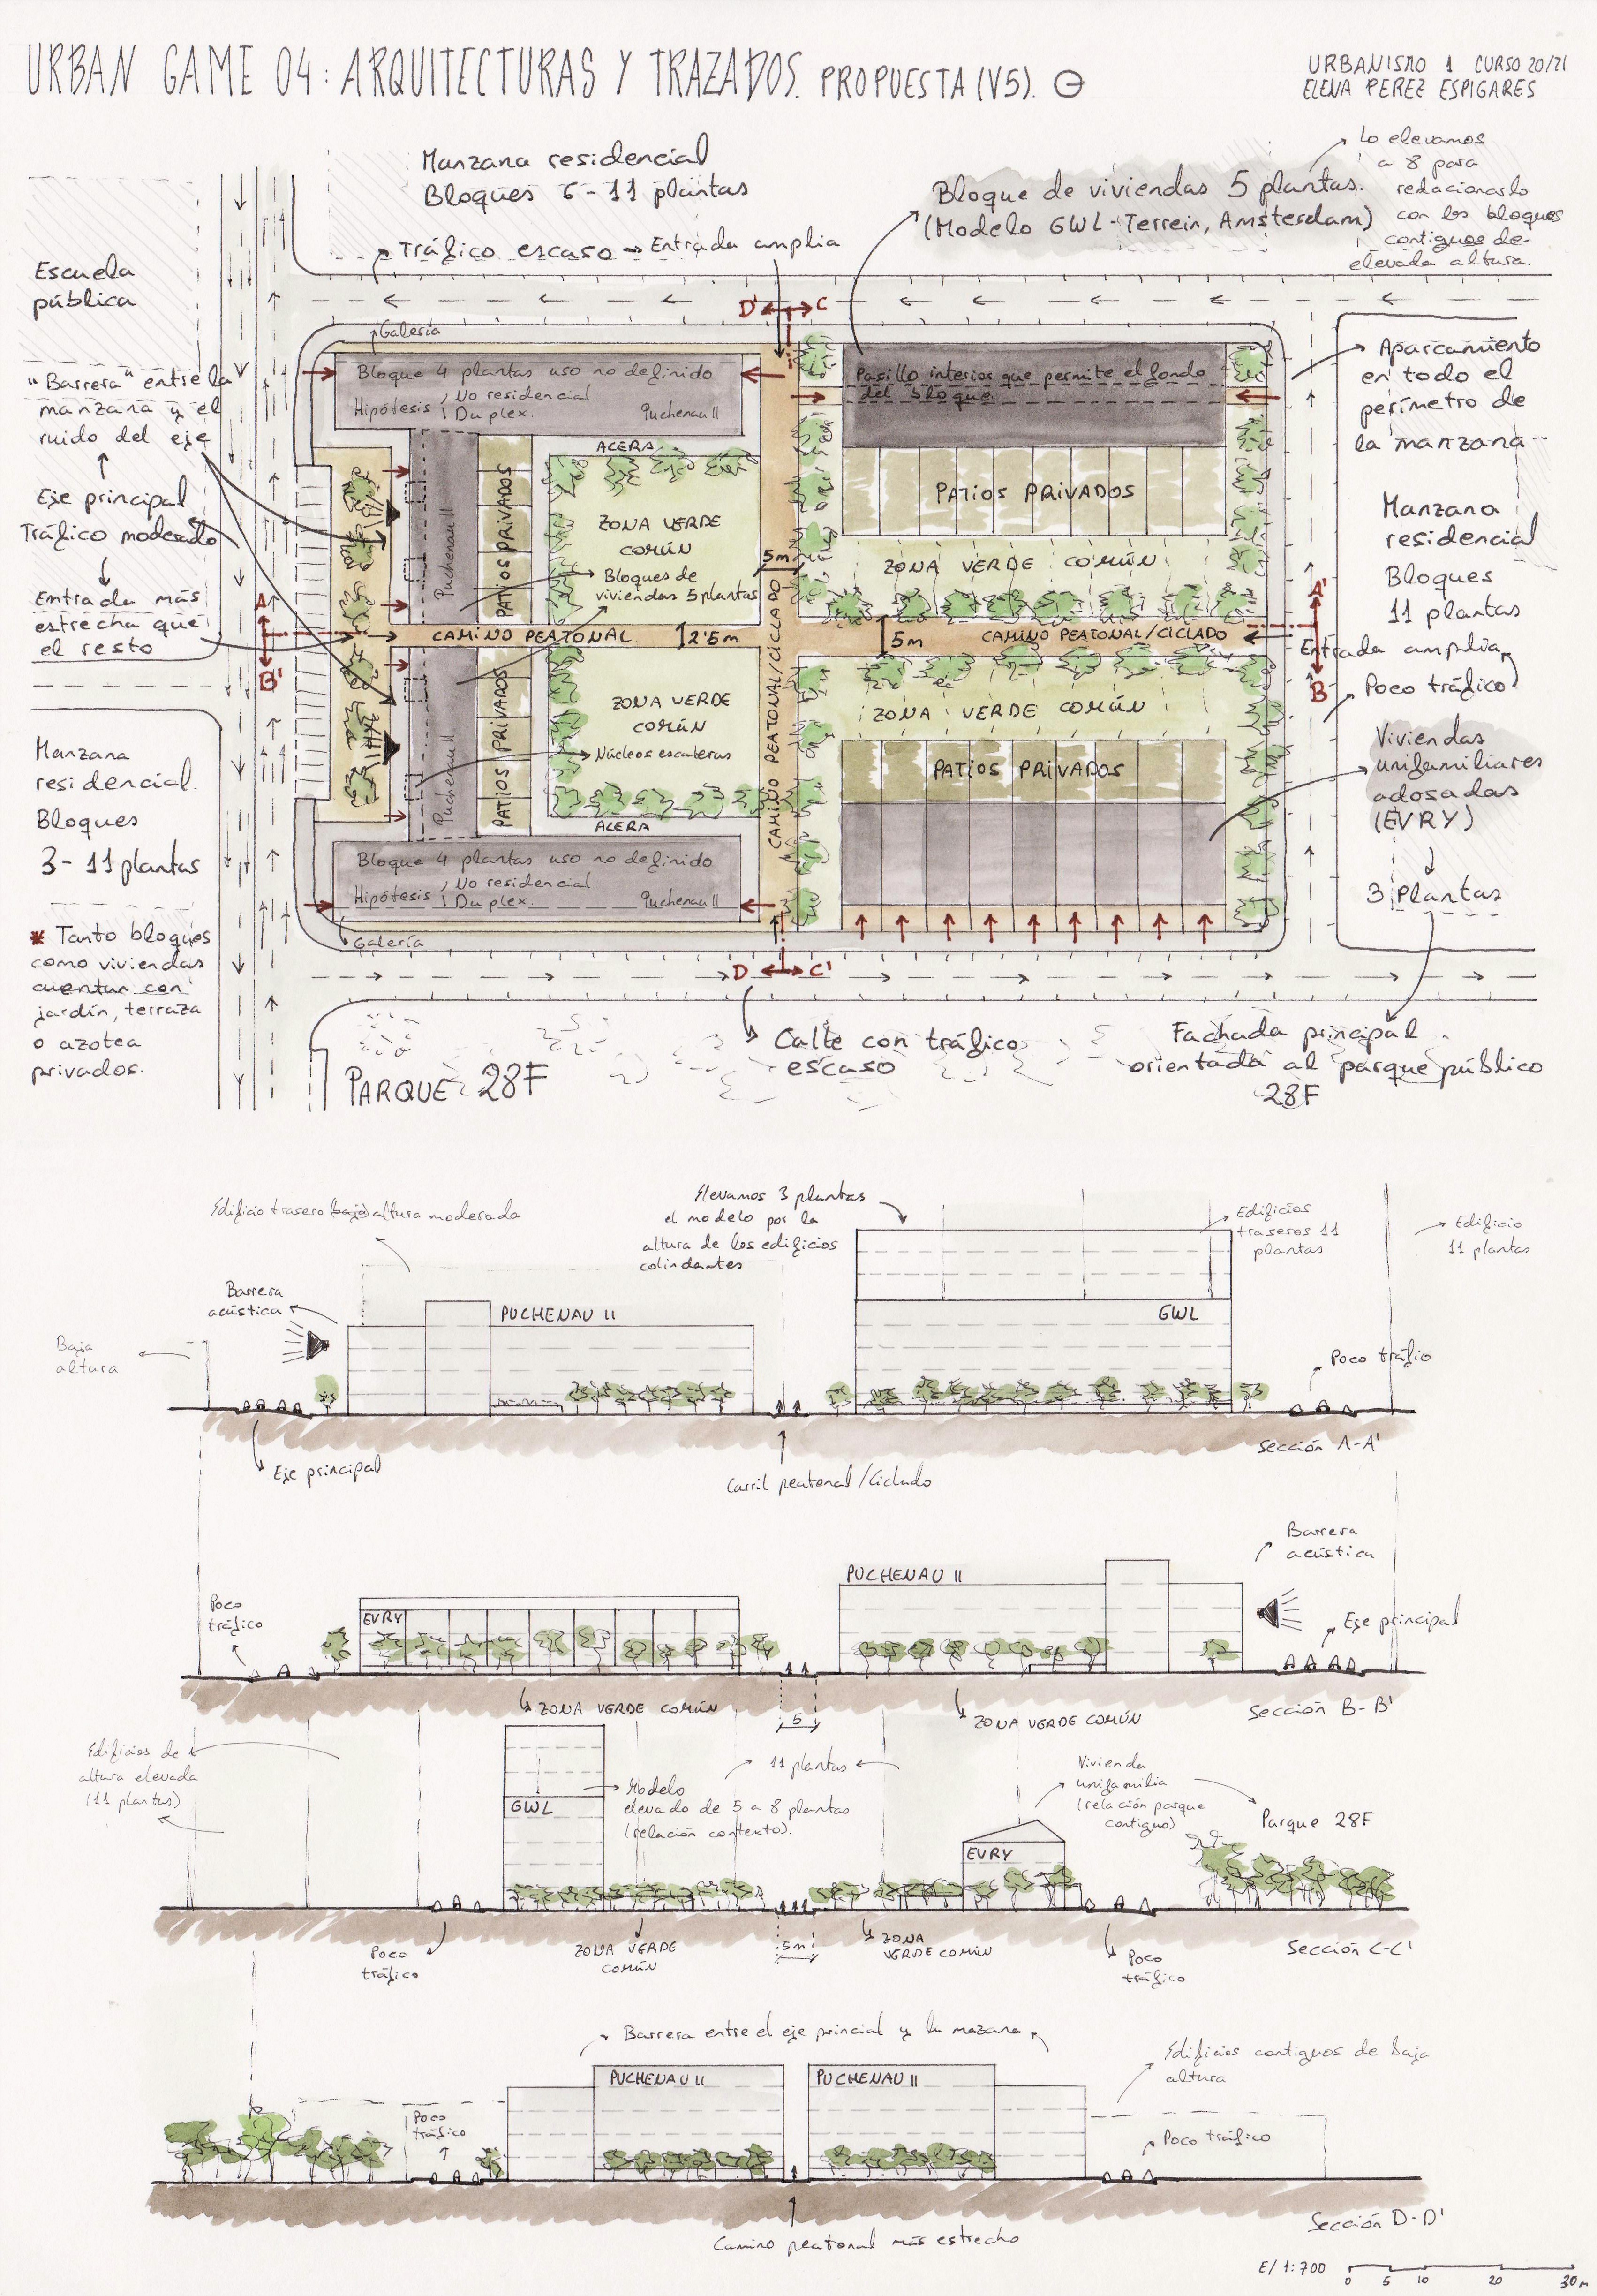 URBAN GAME 04: ARQUITECTURAS Y TRAZADOS. PROPUESTA (V5).
URBANISMO 1 CURSO 20/21
ELENA PEREZ ESPIGARES
Manzana residencial
Bloques 6-11 plantas
Tráfico escaso → Entrada amplia
Bloque de viviendas 5 plantas.
(Modelo GWL-Terrein, Amsterdam)
Lo elevamos
a 8 para
redacionarlo
con los bloques
contiguos de
elevada altura.
Escuela
pública
"Barrera" entre la
manzana y el
ruido del eje
Eje principal
Tráfico moderado
Entrada más
estrecha que
el resto
Manzana
residencial.
Bloques
3-11 plantas
* Tanto bloques
como viviendas
cuentan con
jardín, terraza
o azotea
privados.
D' C
Galería
Bloque 4 plantas uso no definido
Hipótesis No residencial
Duplex. Puchenau II
Pasillo interior que permite el fondo
del bloque.
ACERA
Puchenau II
PATIOS PRIVADOS
ZONA VERDE
COMÚN
5m
Bloques de
viviendas 5 plantas
PATIOS PRIVADOS
ZONA VERDE COMÚN
A
B'
CAMINO PEATONAL
2'5m
CAMINO PEATONAL/CICLADO
5m
CAMINO PEATONAL/CICLADO
A'
B
Puchenau II
PATIOS PRIVADOS
ZONA VERDE
COMÚN
Núcleos escaleras
ACERA
ZONA VERDE COMÚN
PATIOS PRIVADOS
Bloque 4 plantas uso no definido
Hipótesis No residencial
Duplex. Puchenau II
Galería
D C'
Aparcamiento
en todo el
perímetro de
la manzana
Manzana
residencial
Bloques
11 plantas
Entrada amplia
Poco tráfico
Viviendas
unifamiliares
adosadas
(EVRY)
3 Plantas
PARQUE 28F
Calle con tráfico
escaso
Fachada principal
orientada al parque público
28F
Edificio trasero (bajo) altura moderada
Elevamos 3 plantas
el modelo por la
altura de los edificios
colindantes
Edificios
traseros 11
plantas
Edificio
11 plantas
Barrera
acústica
Baja
altura
PUCHENAU II
GWL
Poco tráfio
Eje principal
Carril peatonal/Ciclado
Sección A-A'
Barrera
acústica
Poco
tráfico
EVRY
PUCHENAU II
Eje principal
ZONA VERDE COMÚN
5
ZONA VERDE COMÚN
Sección B-B'
Edificios de
altura elevada
(11 plantas)
GWL
Modelo
elevado de 5 a 8 plantas
(relación contexto).
11 plantas
Vivienda
unifamilia
(relación parque
contiguo)
EVRY
Parque 28F
Poco
tráfico
ZONA VERDE
COMÚN
5m
ZONA
VERDE COMÚN
Poco
tráfico
Sección C-C'
Barrera entre el eje princial y la mazana
PUCHENAU II
PUCHENAU II
Edificios contiguos de baja
altura
Poco
tráfico
Poco tráfico
Camino peatonal más estrecho
Sección D-D'
E/ 1:700
0 5 10 20 30 m